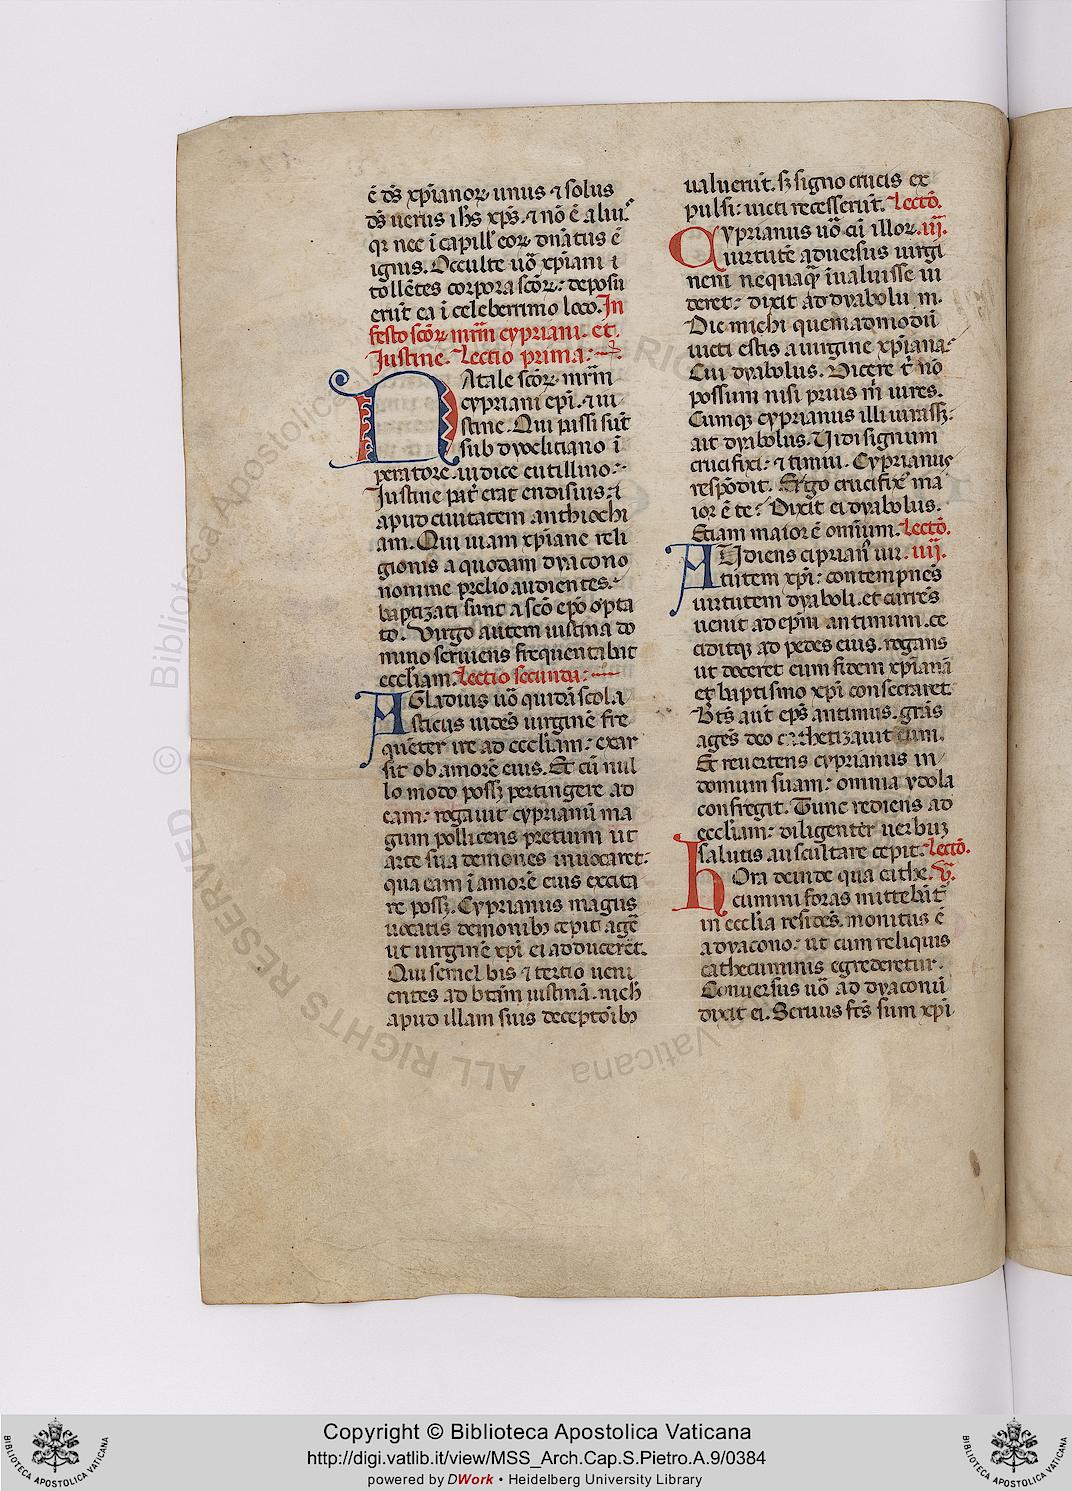 ē d̄s xp̄ianoꝝ. unus ⁊ solus
d̄s uerus ih̄s xp̄s. ⁊ nō ē aliu᷒.
qꝛ nec ī capill' eoꝝ. dn̄atus ē
ignis. Occulte uō xp̄iani ī
tollētes corpora scōꝝ: deposu
erūt ea ī celeberrimo loco. In
festo scōꝝ mr̄m̄ cypriani. et.
Iustine. Lectio prima:
NAtale scōꝝ. mr̄m̄
cypriani ep̄i. ⁊ iu
stine. Qui passi sūt
sub dyocliciano ī
peratore. iudice eutillmo:
Iustine pat̄ erat endisius. ⁊
apud ciuitatem anthiochi
am. Qui uiam xp̄iane reli
gionis a quodam dyacono
nomine prelio audientes.
baptizati sunt a scō ep̄o opta
to. Virgo autem iustina do
mino seruiens frequentabat
eccl̄iam. Lectio secunda:
AGladius uō quidā scola
sticus uidēs uirginē fre
quēter ire ad eccl̄iam: exar
sit ob amorē eius. Et cū nul
lo modo possꝫ pertingere ad
eam: rogauit cyprianū ma
gum pollicens pretium ut
arte sua demones inuocaret:
qua eam ī amorē eius excita
re possꝫ. Cyprianus magus
uocatis demonibꝫ cepit agē
ut uirginē xp̄i ei adducerēt.
Qui semel bis ⁊ tertio ueni
entes ad btām iustinā. nich̄
apud illam suis deceptōibꝫ
ualuerūt. sꝫ signo crucis ex
pulsi: uicti recesserūt. Lectō.
Cyprianus uō cū illoꝝ. iij.
uirtutē aduersus uirgi
nem nequaq̄ īualuisse ui
deret: dixit ad dyabolum.
Dic michi quemadmodū
uicti estis a uirgine xp̄iana.
Cui dyabolus. Dicere t̄ nō
possum nisi prius m̄ iures.
Cumqꝫ cyprianus illi iurassꝫ.
ait dyabolus. Uidi signum
crucifixi: ⁊ timui. Cyprianus
respōdit. Ergo crucifix᷒ ma
ior ē te? Dixit ei dyabolus.
Etiam maior ē omnium. Lectō.
AUdiens ciprian᷒ uir. iiij.
tutem xp̄i: contempnēs
uirtutem dyaboli. et currēs
uenit ad ep̄m antimum. ce
ciditqꝫ ad pedes eius. rogans
ut doceret eum fidem xp̄ianā
et baptismo xp̄i consecraret.
Bt̄s aūt ep̄s antimus. grās
agēs deo cathetizauit eum.
Et reuertens cyprianus in
domum suam: omnia ydola
confregit. Tunc rediens ad
eccl̄iam: diligenter uerbis
salutis auscultare cepit. Lectō.
hOra deinde qua cathe. v̄.
cummi foras mittebāt̄
in eccl̄ia residēs. monitus ē
a dyacono: ut cum reliquis
cathecuminis egrederetur.
Conuersus uō ad dyaconū
dixit ei. Seruus fc̄s sum xp̄i.
Copyright © Biblioteca Apostolica Vaticana
http://digi.vatlib.it/view/MSS_Arch.Cap.S.Pietro.A.9/0384
powered by DWork • Heidelberg University Library